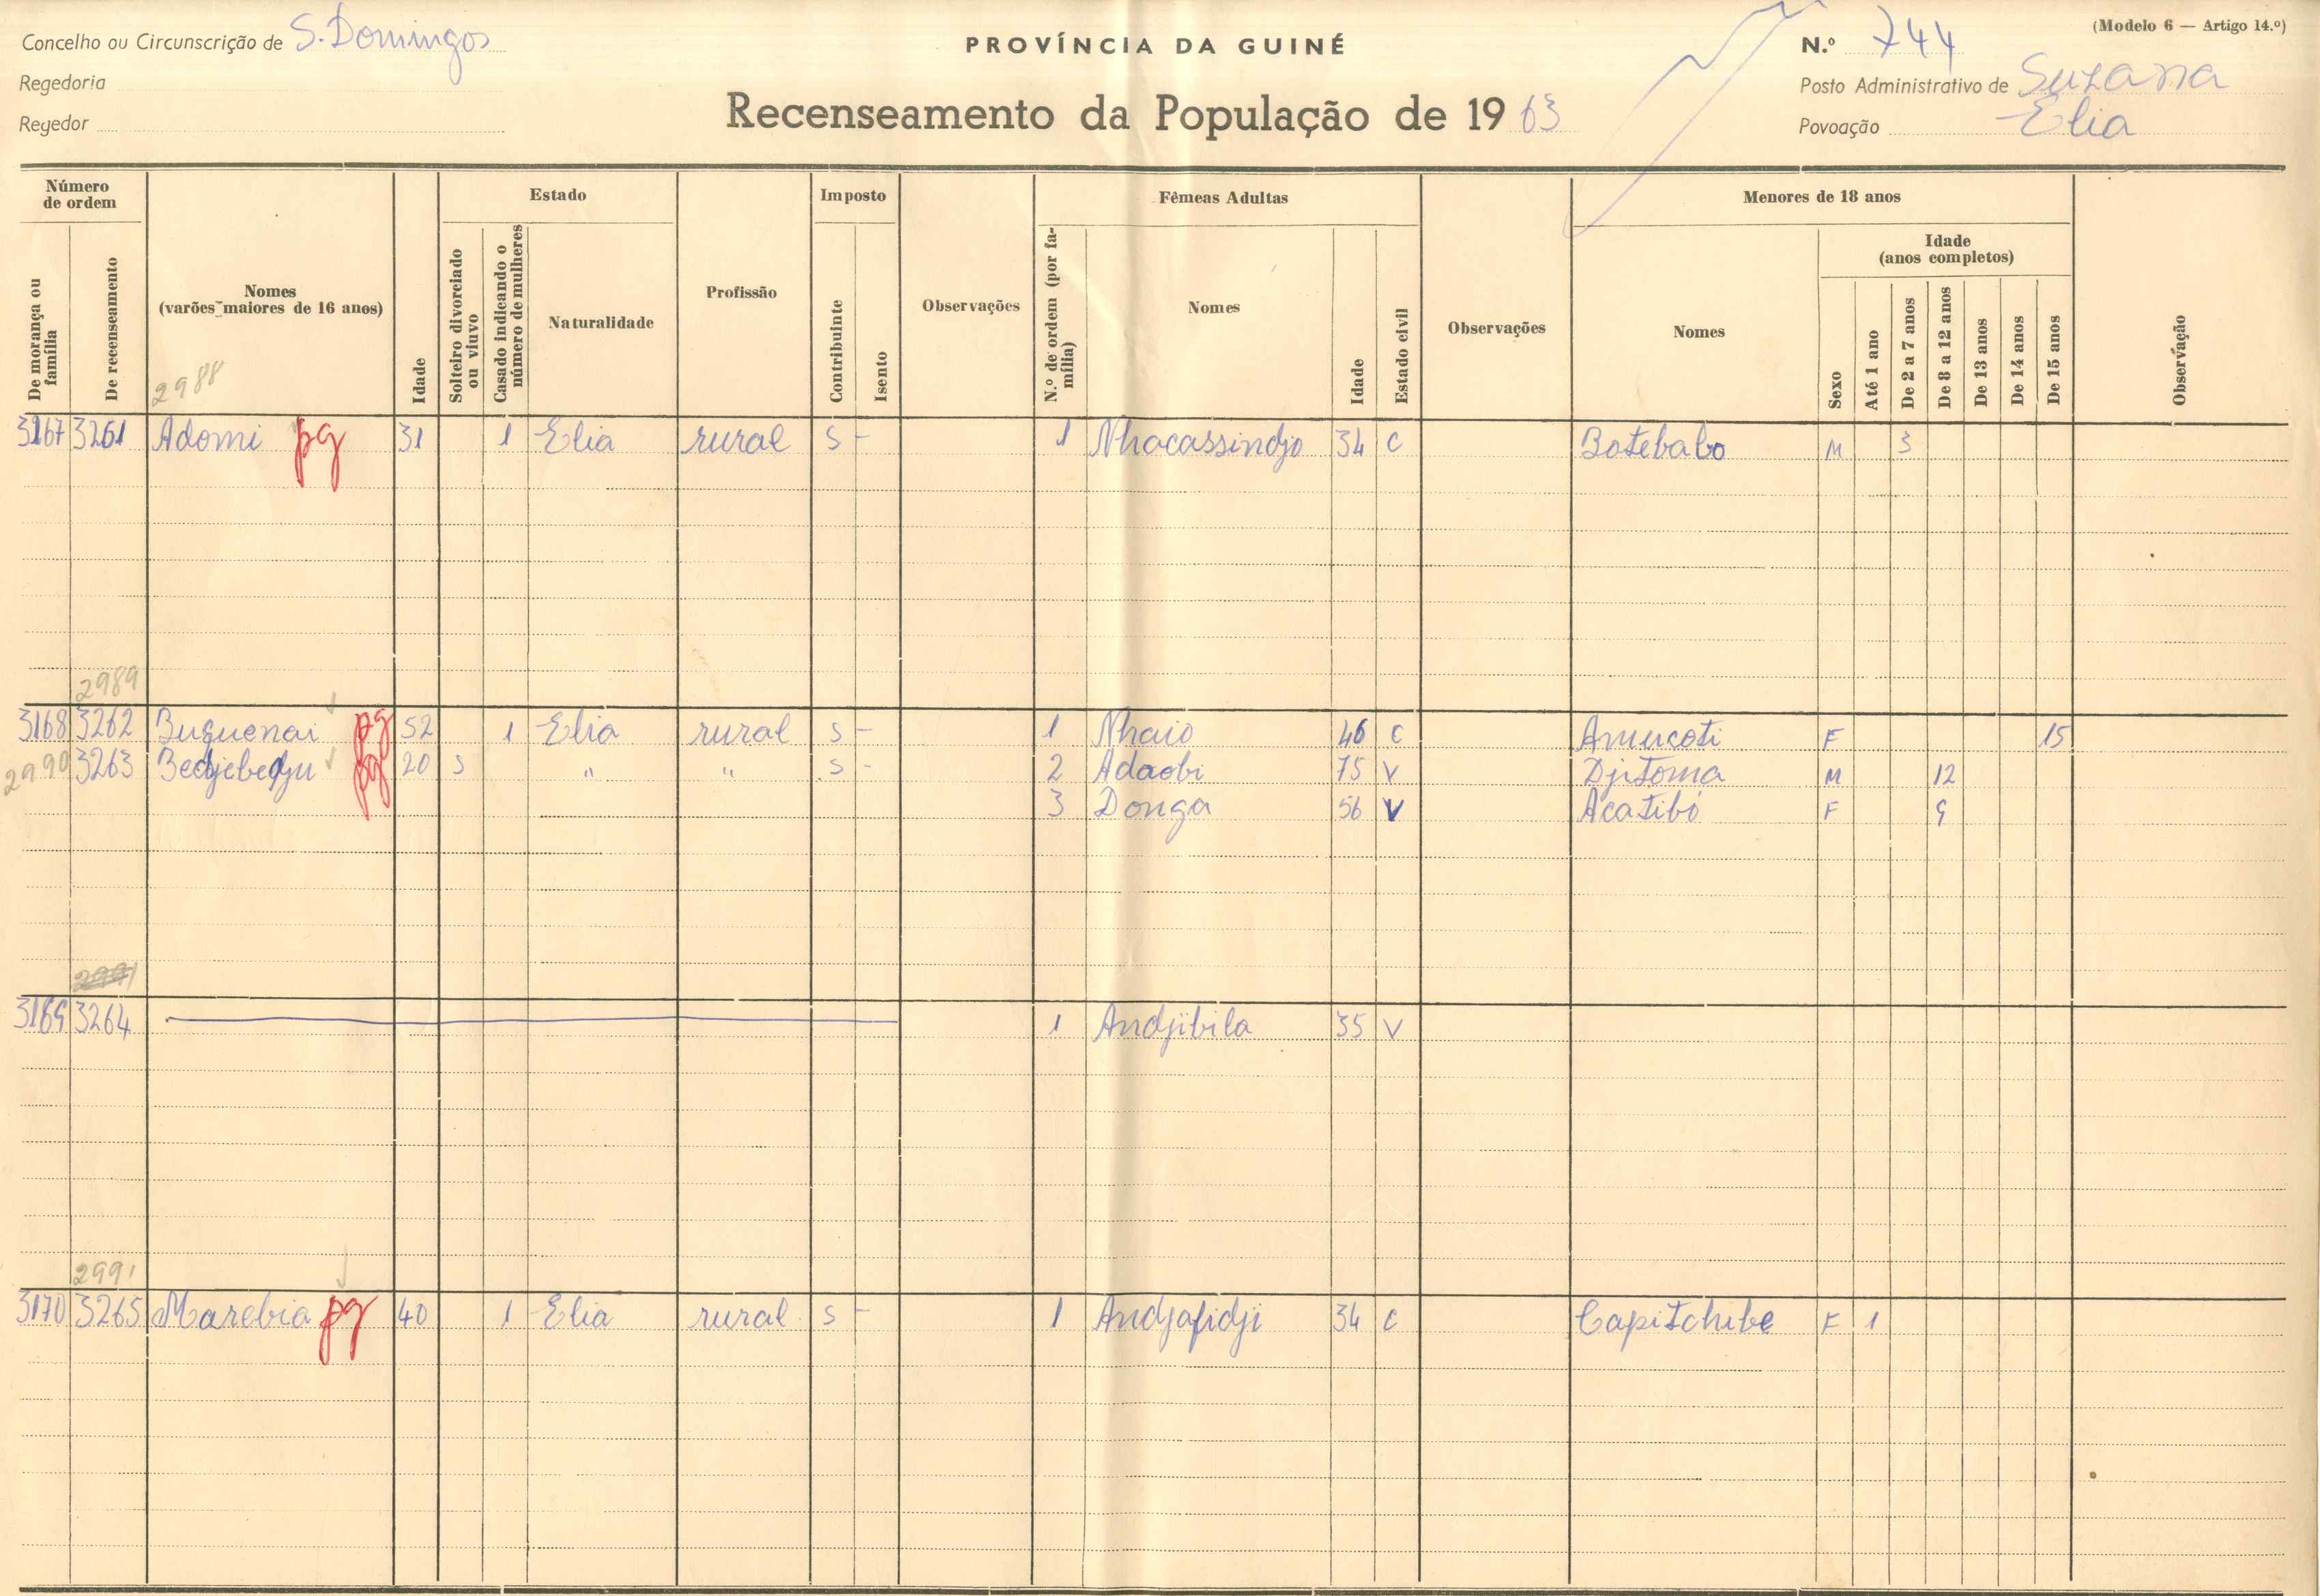 Concelho ou Circunscrição de S. Domingos
PROVÍNCIA DA GUINÉ
N.º 744
(Modelo 6 — Artigo 14.º)
Regedoria
Recenseamento da População de 1963
Posto Administrativo de Suzana
Regedor
Povoação Elia
Número de ordem
De morança ou família
De recenseamento
Nomes (varões maiores de 16 anos)
Idade
Estado
Solteiro divorciado ou viuvo
Casado indicando o número de mulheres
Naturalidade
Profissão
Imposto
Contribuinte
Isento
Observações
Fêmeas Adultas
N.º de ordem (por família)
Nomes
Idade
Estado civil
Observações
Menores de 18 anos
Nomes
Sexo
Idade (anos completos)
Até 1 ano
De 2 a 7 anos
De 8 a 12 anos
De 13 anos
De 14 anos
De 15 anos
Observação
2988
3167 3261 Adomi pg 31 1 Elia rural s - 1 Nhacassindjo 34 C Botebabo M 3
2989
3168 3262 Buguenai pg 52 1 Elia rural s - 1 Nhaio 46 C Amucoti F 15
2990 3263 Bedjebedju pg 20 s " " s - 2 Adaobi 75 V Djitoma M 12
3 Donga 56 V Acatibó F 9
2991
3169 3264 1 Andjibila 35 V
2991
3170 3265 Marebia pg 40 1 Elia rural s - 1 Andjafidji 34 C Capitchibe F 1